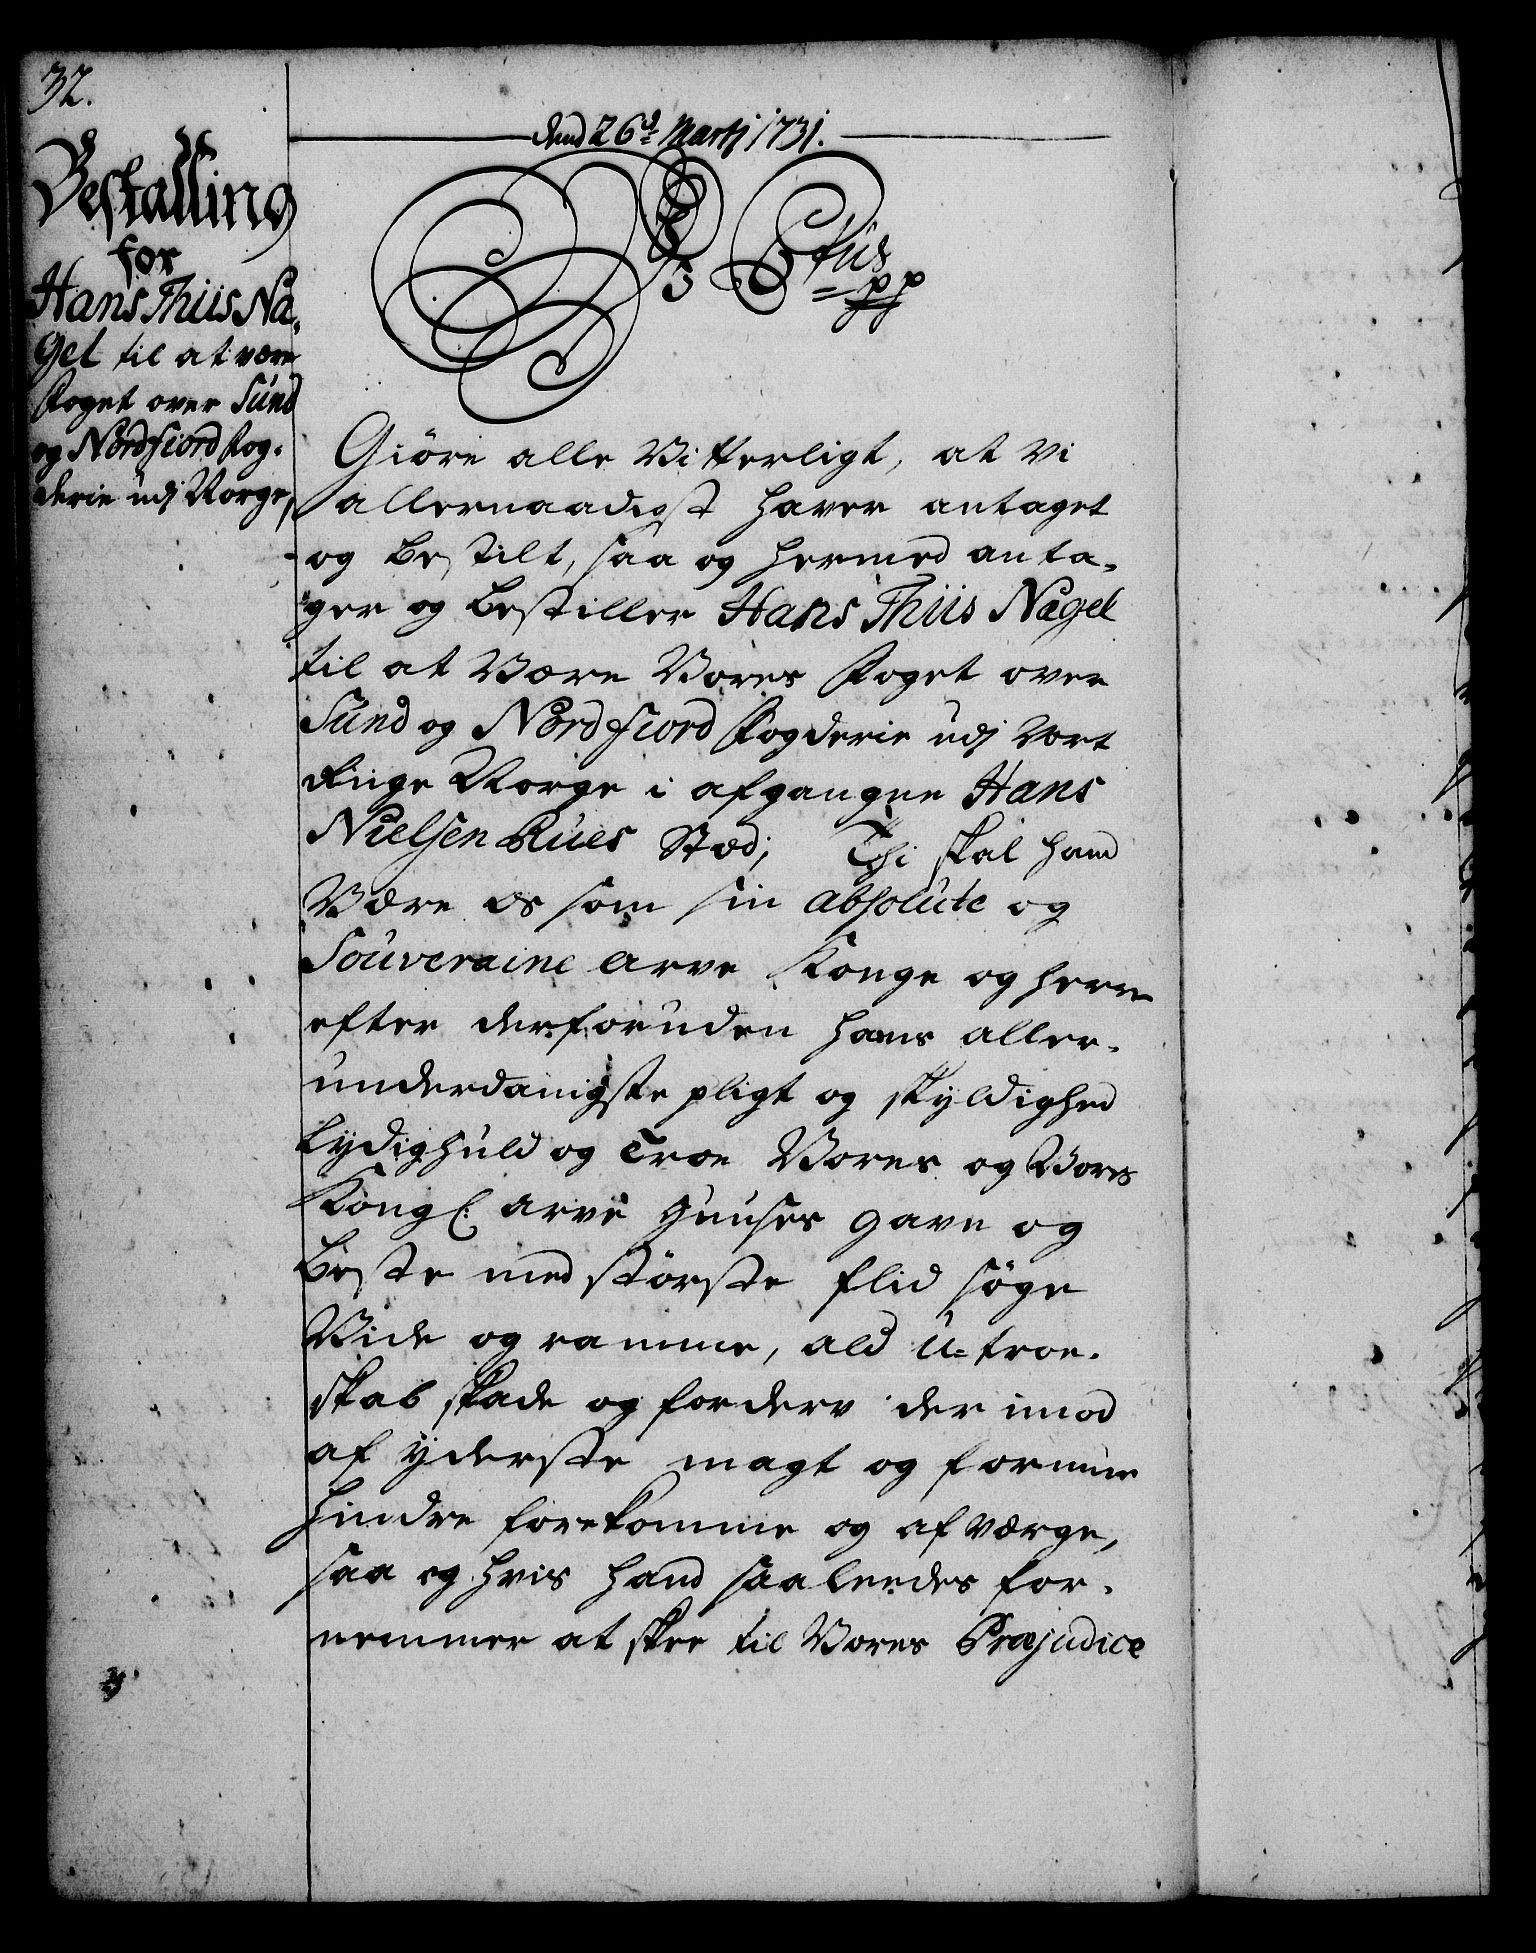 32.
Bestalling
for
Hans Thiis Na,
gel til at være
Foget over Sund
og Nordfiord Fog,
derie udj Norge,
dend 26d. Martj 1731.
C 6tus
pp
Giöre alle Vitterligt, at Vi
allernaadigst haver antaget
og bestilt, saa og hermed anta,
ger og bestiller Hans Thiis Nagel
til at Være Vores Foget over
Sund og Nordfiord Fogderie udj vort
Rige Norge i afgangne Hans
Nielsen Rues Stæd; Thi skal hand
Være os som sin absolute og
Souveraine Arve Konge og Herre
efter derforuden hans aller,
underdanigste pligt og skyldighed
Lydig huld og Troe Vores og Vores
Kongl: Arve Huuses gavn og
Beste med störste flid söge
Vide og ramme, ald U=troe,
skab skade og forderv der imod
af yderste magt og formue
hindre forekomme og afværge,
saa og hvis hand saaleedes for,
nemmer at skee til Vores Præjudice